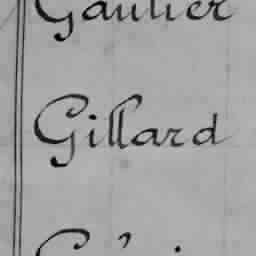 Gautier
Gillard